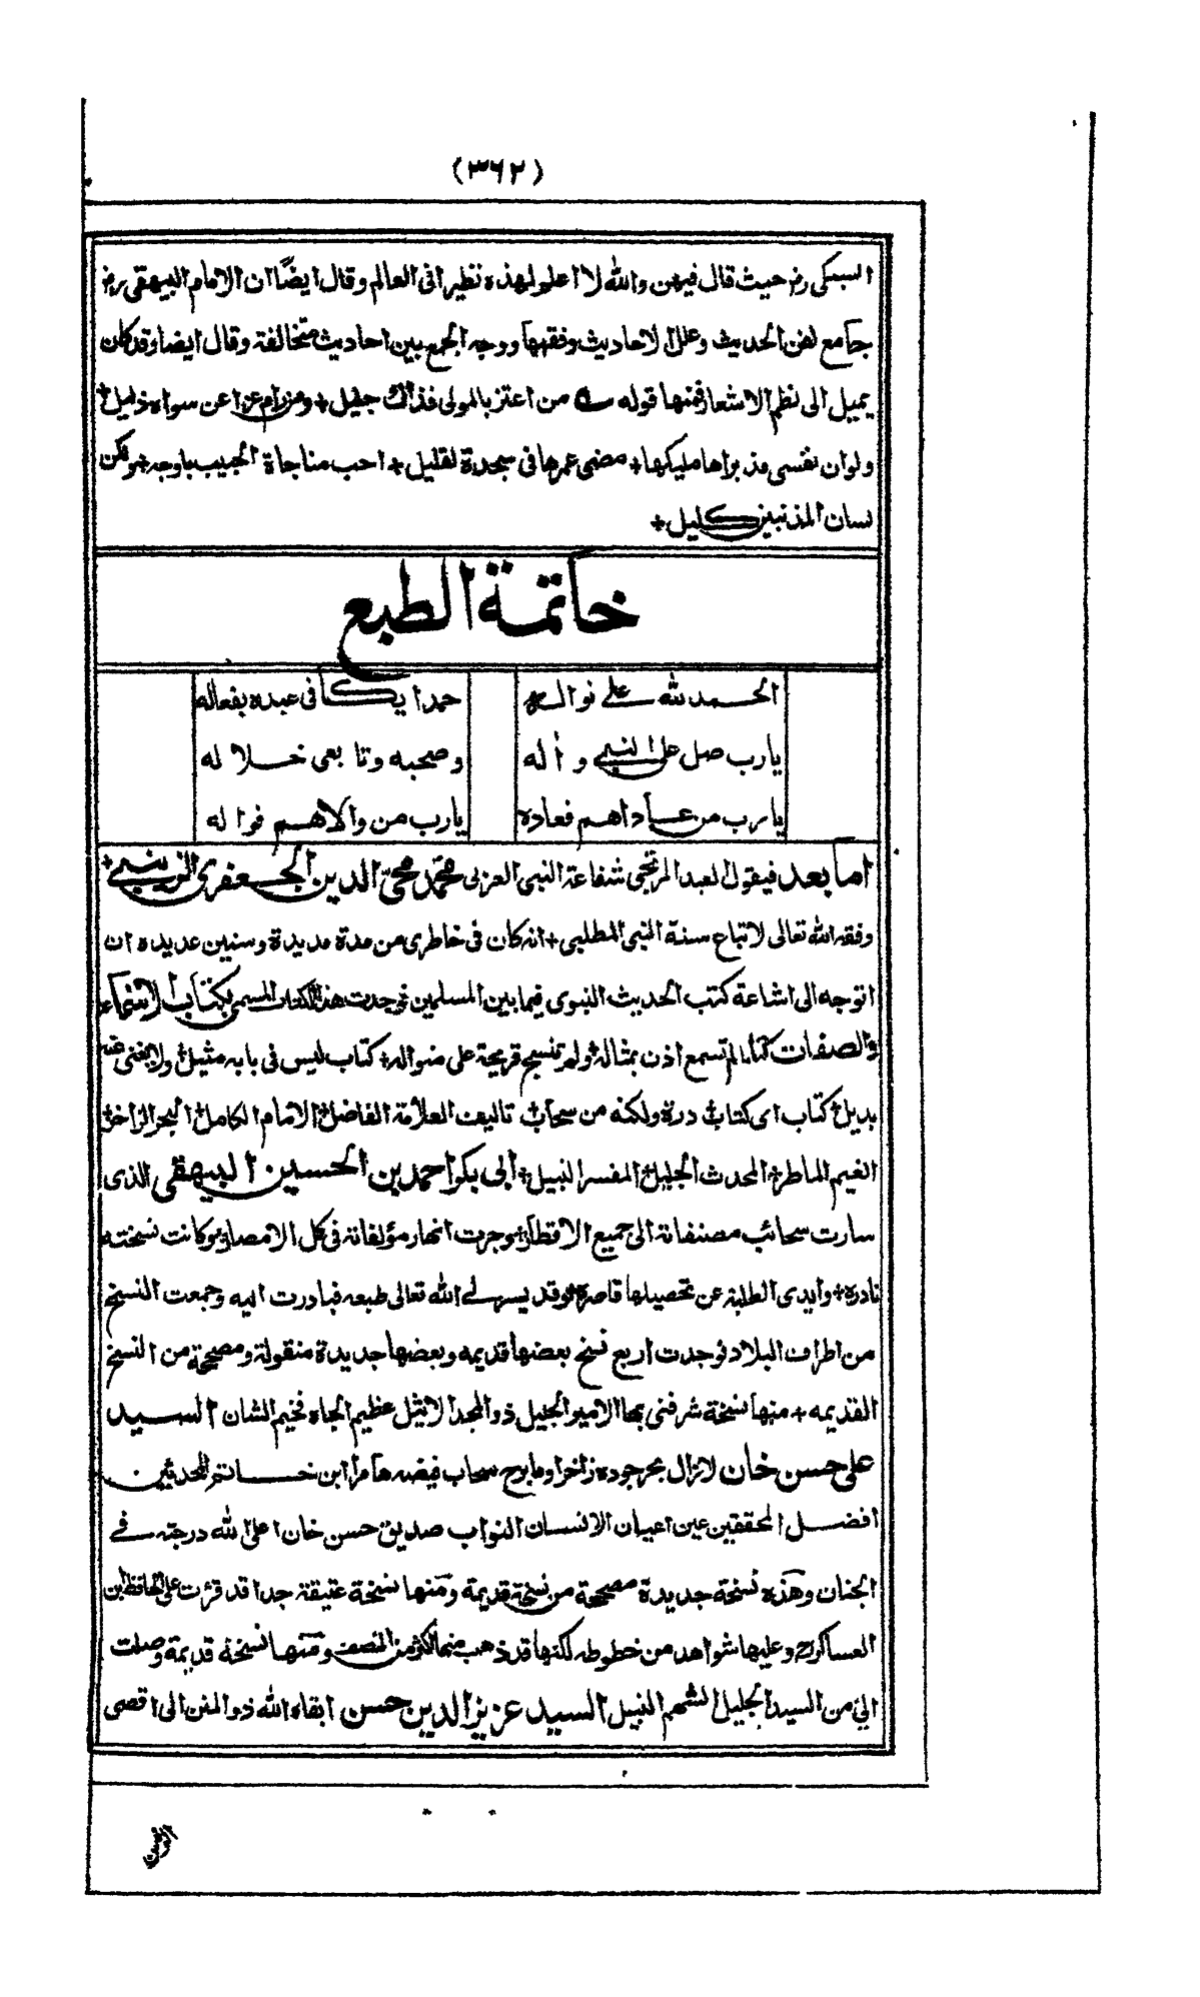 (٣٦٢)
السبكى رح حيث قال فيهن والله لا اعلم لهذه نظيرا فى العالم وقال ايضًا ان الامام البيهقى رح
جامع لفن الحديث وعلل الاحاديث وفقهها ووجه الجمع بين احاديث متخالفة وقال ايضا وقد كان
يميل الى نظم الاشعار فمنها قوله من اعتز بالمولى فذاك جليل + ومن رام عزا عن سواه ذليل +
ولو ان نفسى مذ براها مليكها + مضى عمرها فى سجدة لقليل + احب مناجاة الحبيب باوجه + ولكن
لسان المذنبين كليل +
خاتمة الطبع
الحمد لله على نواله حمدا يكافى عبده بفعاله
يارب صل على النبى واٰله وصحبه وتابعى خلاله
يارب من عاداهم فعاده يارب من والاهم فواله
اما بعد فيقول العبد المرتجى شفاعة النبى العربى محمد محى الدين الجعفرى الزينبى +
وفقه الله تعالى لاتباع سنة النبى المطلبى + انه كان فى خاطرى من مدة مديدة وسنين عديده ان
اتوجه الى اشاعة كتب الحديث النبوى فيما بين المسلمين فوجدت هذا الكتاب المسمى بكتاب الاسماء
والصفات كتابا لم تسمع اذن بمثاله + ولم تنسج قريحة على منواله + كتاب ليس فى بابه مثيل + ولا يغنى عنه
بديل + كتاب اى كتاب درة ولكنه من سحاب تاليف العلامة الفاضل + الامام الكامل + البحر الزاخر +
الغيم الماطر + المحدث الجليل + المفسر النبيل + ابى بكر احمد بن الحسين البيهقى الذى
سارت سحائب مصنفاته الى جميع الاقطار + وجرت انهار مؤلفاته فى كل الامصار + وكانت نسخته
نادرة + وايدى الطلبة عن تحصيلها قاصرة + وقد يسر لى الله تعالى طبعه فبادرت اليه وجمعت النسخ
من اطراف البلاد فوجدت اربع نسخ بعضها قديمه وبعضها جديدة منقولة ومصححة من النسخ
القديمه + منها نسخة شرفنى بها الامير الجليل ذو المجد الاثيل عظيم الجاه فخيم الشان السيد
على حسن خان لازال بحر جوده زاخرا وما برح سحاب فيضه هامرا ابن خاتم المحدثين
افضل المحققين عين اعيان الانسان النواب صديق حسن خان اعلى الله درجته فى
الجنان وهذه نسخة جديدة مصححة من نسخة قديمة ومنها نسخة عتيقة جدا قد قرئت على الحافظ ابن
العساكر رح وعليها شواهد من خطوطه لكنها قد ذهب منها اكثر من النصف ومنها نسخة قديمة وصلت
الىّ من السيد الجليل الشهم النبيل السيد عزيز الدين حسن ابقاه الله ذو المنن الى اقصى